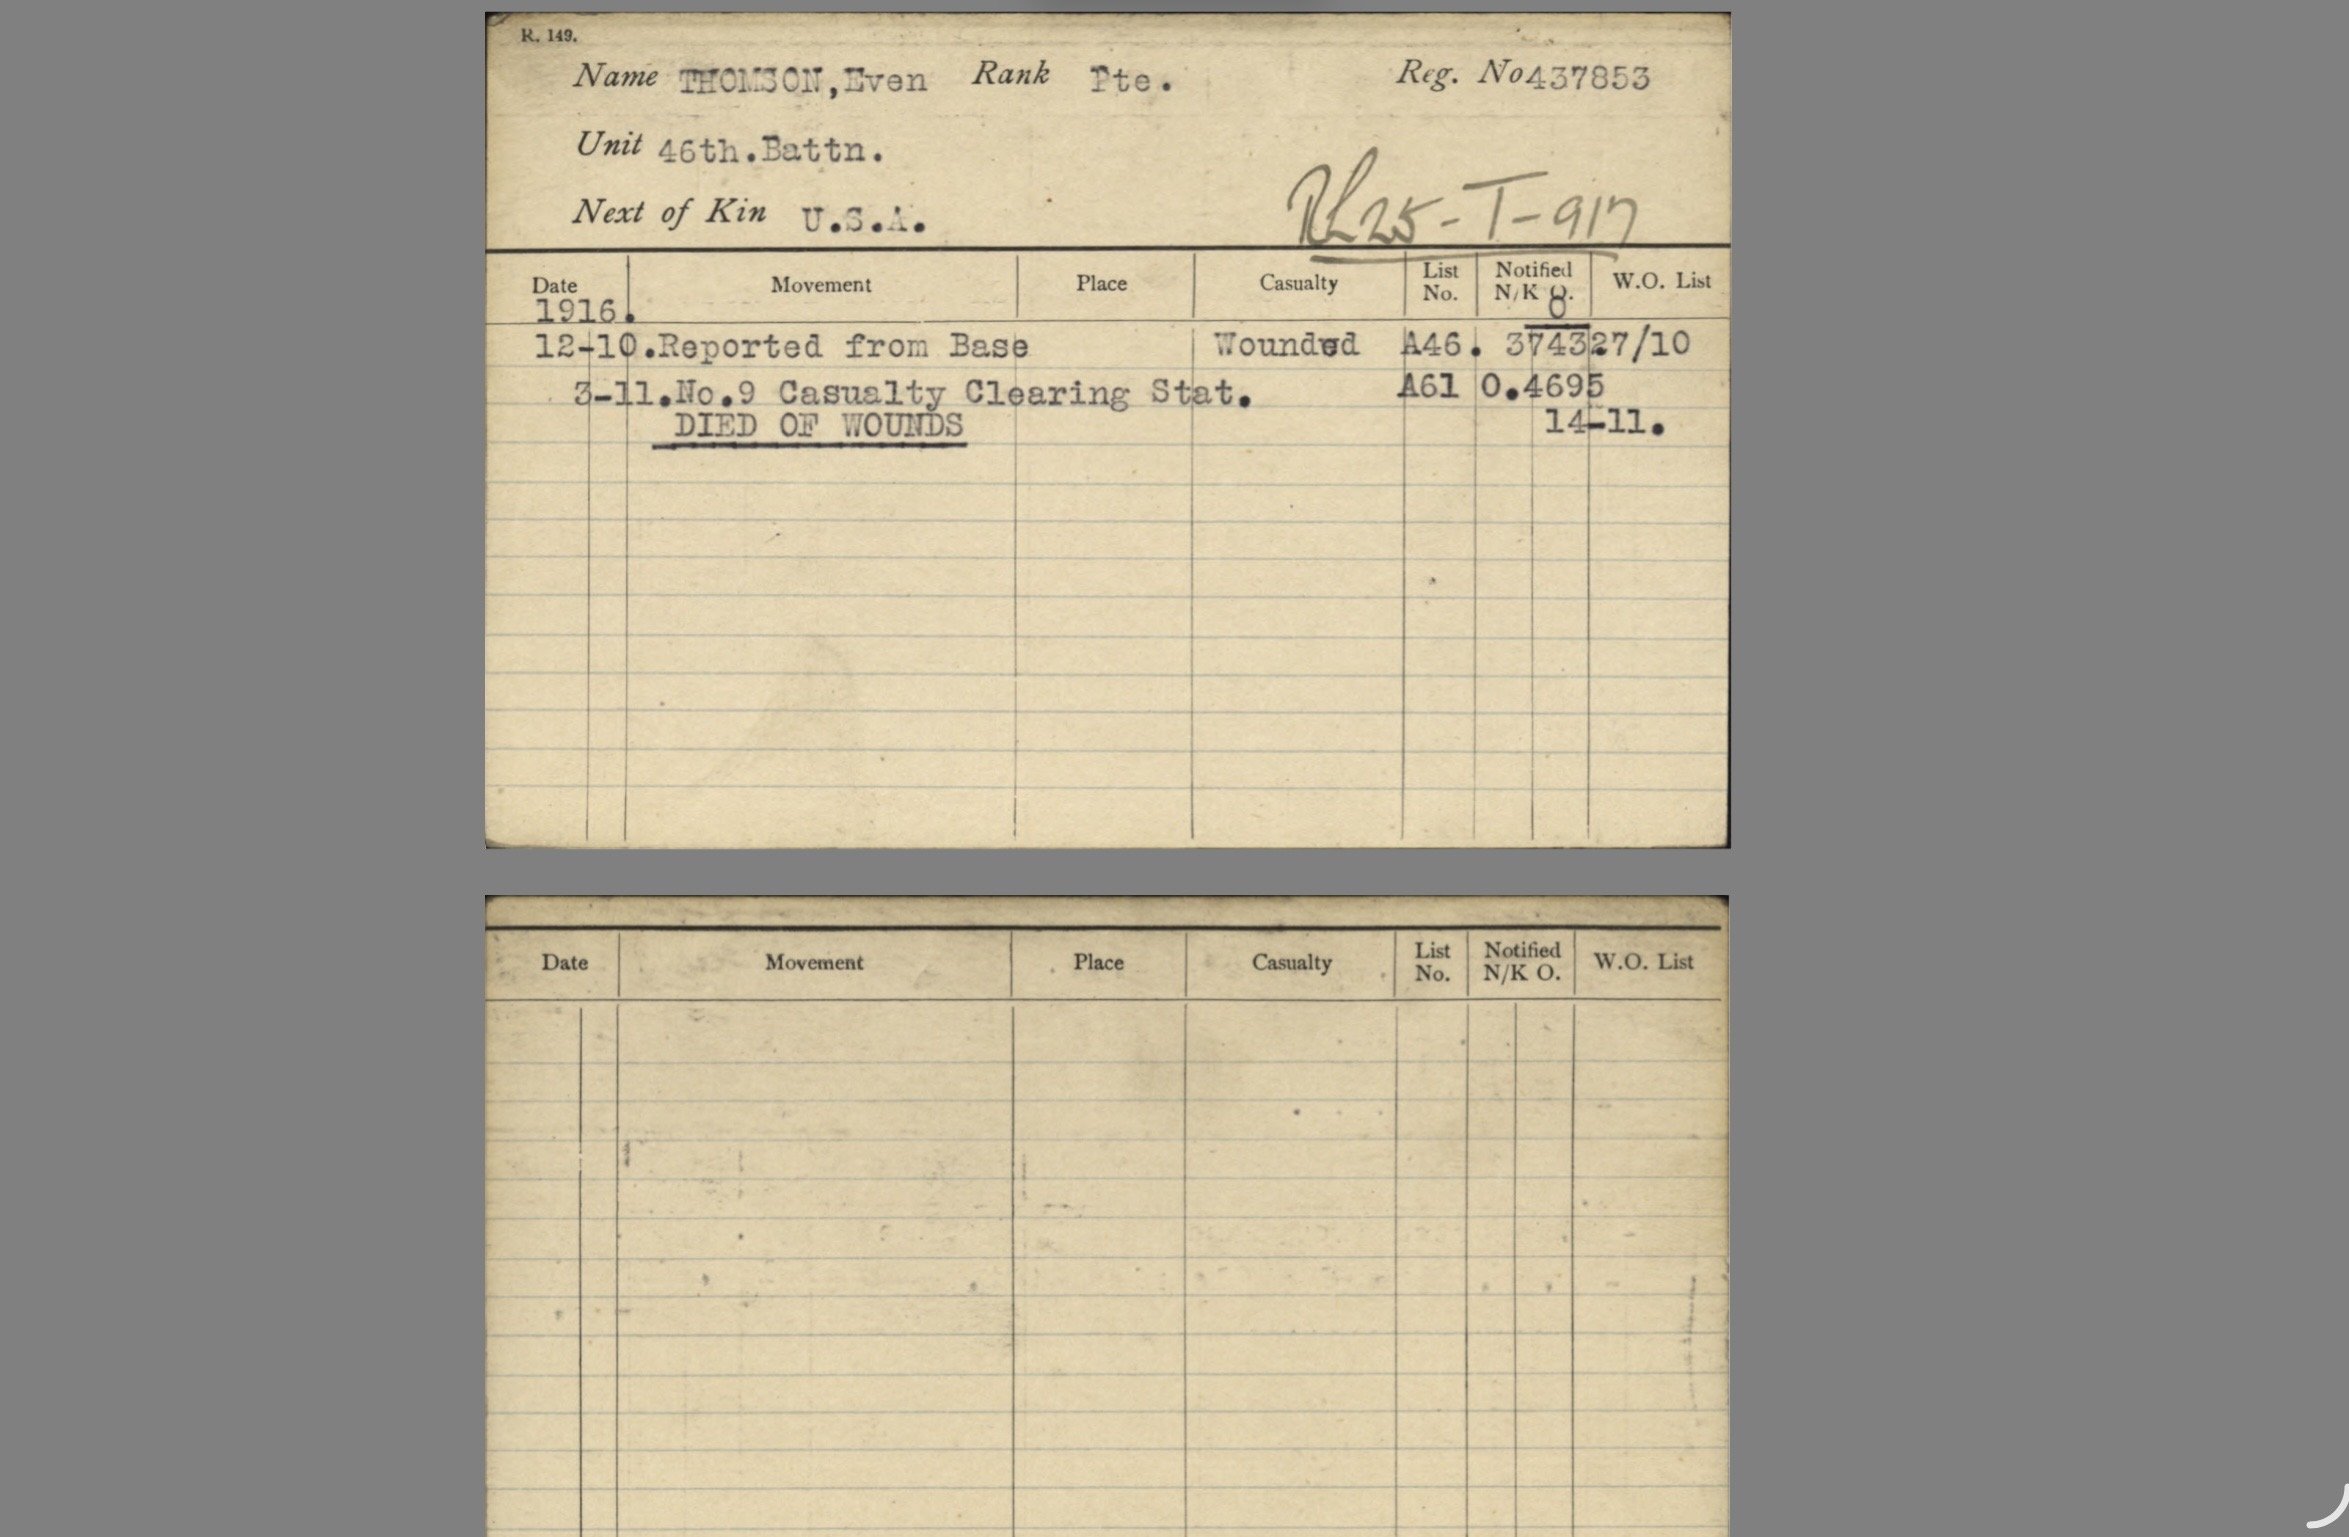 R. 149.
Name THOMSON, Even Rank Pte. Reg. No 437853
Unit 46th. Battn.
Next of Kin U.S.A.
RL25-T-917
Date Movement Place Casualty List No. Notified N/K O. W.O. List
1916.
12-10. Reported from Base Wounded A46. 37432 7/10
3-11. No.9 Casualty Clearing Stat. A61 O.4695
DIED OF WOUNDS 14-11.
Date Movement Place Casualty List No. Notified N/K O. W.O. List